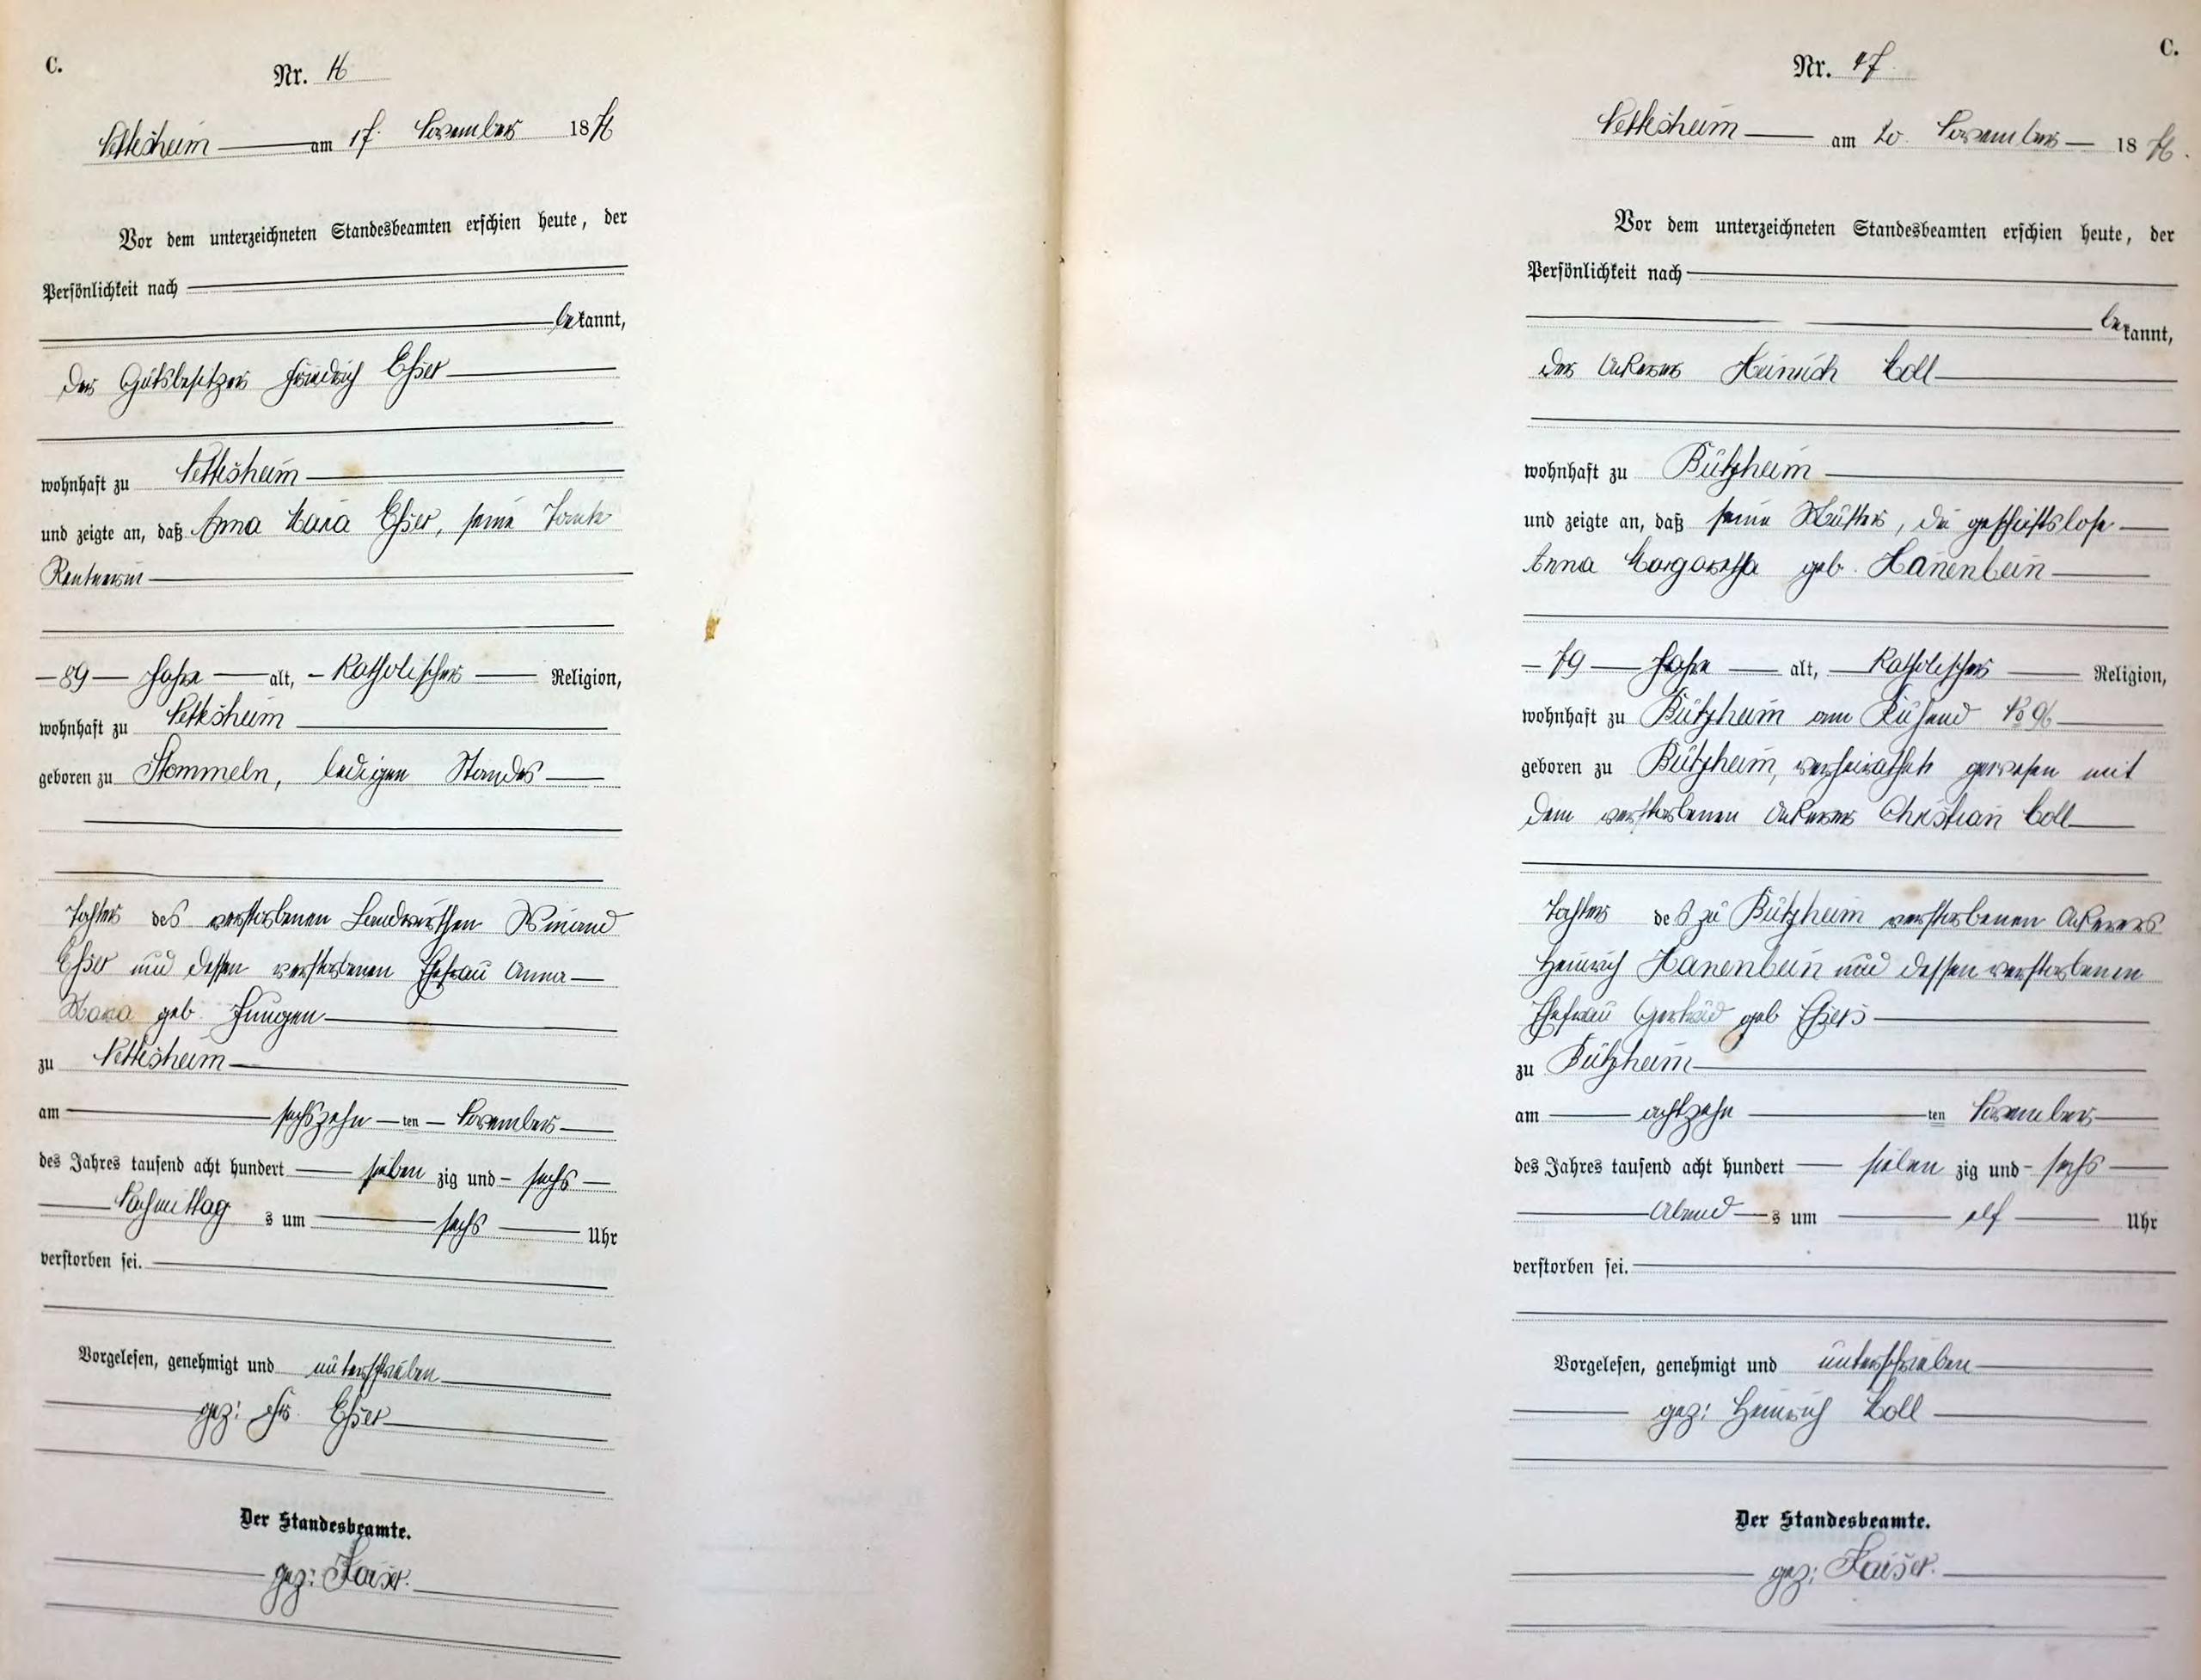 C.
Nr. 46
Nettesheim am 17. November 1876
Vor dem unterzeichneten Standesbeamten erschien heute, der
Persönlichkeit nach
bekannt,
der Gutsbesitzer Friedrich Esser
wohnhaft zu Nettesheim
und zeigte an, daß Anna Maria Esser, seine Tante
Rentnerin
89 Jahre alt, Katholischer Religion,
wohnhaft zu Nettesheim
geboren zu Stommeln, ledigen Standes
Tochter des verstorbenen Landwirthen Winand
Esser und dessen verstorbenen Ehefrau Anna
Maria geb. Jungen
zu Nettesheim
am sechszehn ten November
des Jahres tausend acht hundert sieben zig und sechs
Nachmittag s um sechs Uhr
verstorben sei.
Vorgelesen, genehmigt und unterschrieben
gez: Fr. Esser
Der Standesbeamte.
gez: Kaiser.
C.
Nr. 47
Nettesheim am 20. November 1876.
Vor dem unterzeichneten Standesbeamten erschien heute, der
Persönlichkeit nach
bekannt,
der Ackerer Heinrich Moll
wohnhaft zu Bützheim
und zeigte an, daß seine Mutter, die geschäftslose
Anna Margaretha geb. Hanenbein
79 Jahre alt, Katholischer Religion,
wohnhaft zu Bützheim am No 96
geboren zu Bützheim, verheirathet gewesen mit
dem verstorbenen Ackerer Christian Moll
Tochter des zu Bützheim verstorbenen Ackerers
Heinrich Hanenbein und dessen verstorbenen
Ehefrau Gertrud geb Essers
zu Bützheim
am achtzehn ten November
des Jahres tausend acht hundert sieben zig und sechs
Abend s um elf Uhr
verstorben sei.
Vorgelesen, genehmigt und unterschrieben
gez: Heinrich Moll
Der Standesbeamte.
gez: Kaiser.